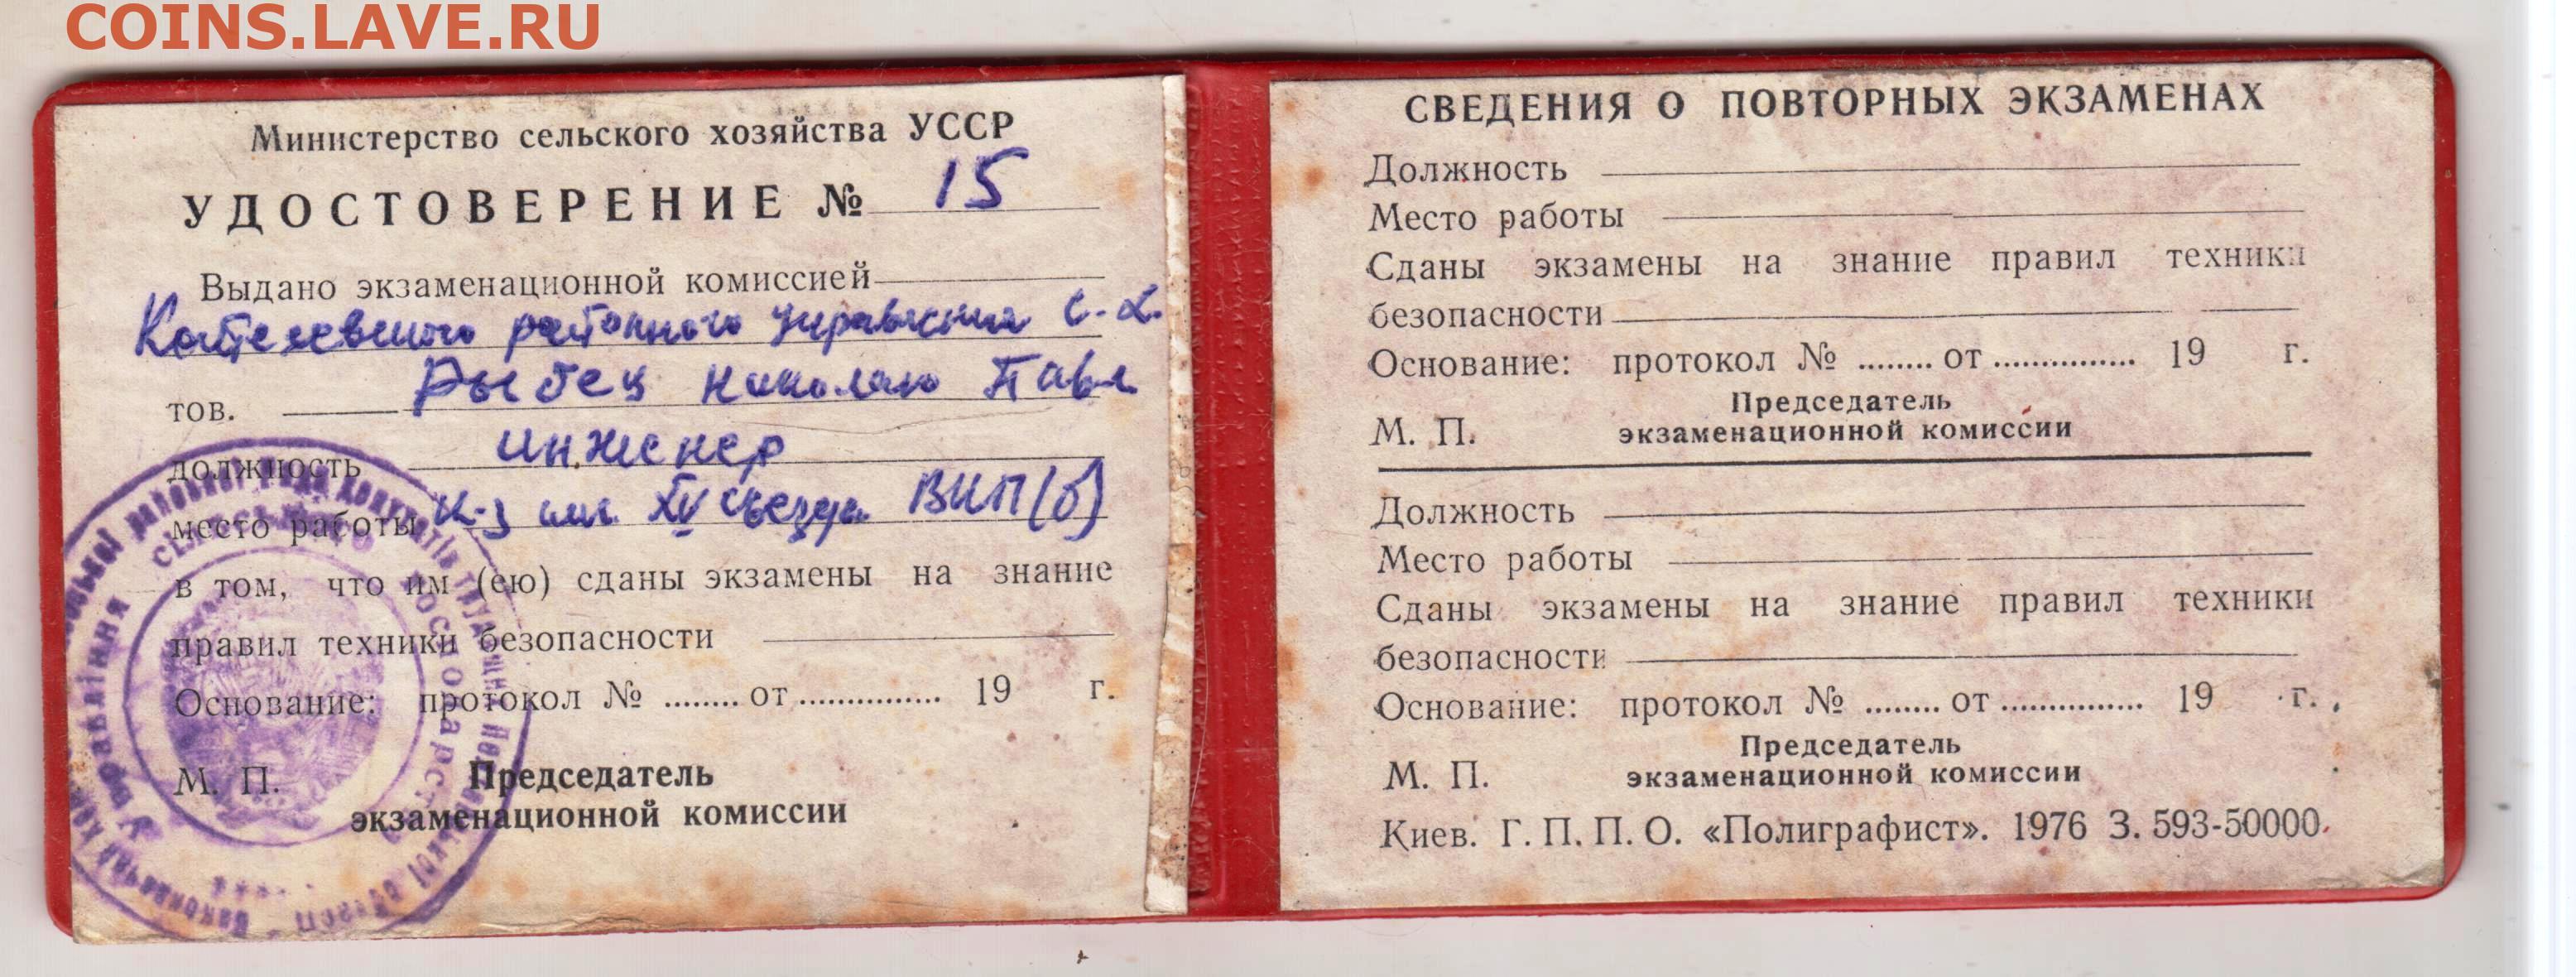 COINS.LAVE.RU
Министерство сельского хозяйства УССР
УДОСТОВЕРЕНИЕ № 15
Выдано экзаменационной комиссией
районного управления с.х.
тов. Рыбец Николаю Павл
должность инженер
место работы к-з им. XV съезда ВКП(б)
в том, что им (ею) сданы экзамены на знание
правил техники безопасности
Основание: протокол № ........ от ............... 19 г.
М. П. Председатель
экзаменационной комиссии
СВЕДЕНИЯ О ПОВТОРНЫХ ЭКЗАМЕНАХ
Должность
Место работы
Сданы экзамены на знание правил техники
безопасности
Основание: протокол № ........ от ............... 19 г.
Председатель
М. П. экзаменационной комиссии
Должность
Место работы
Сданы экзамены на знание правил техники
безопасности
Основание: протокол № ........ от ............... 19 г.
Председатель
М. П. экзаменационной комиссии
Киев. Г. П. П. О. «Полиграфист». 1976 З. 593-50000.